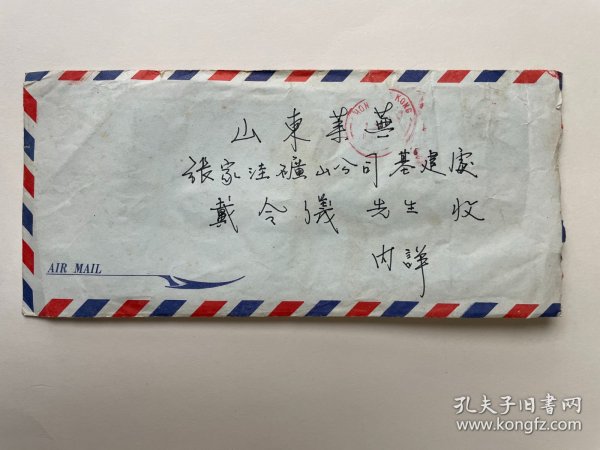 HON KONG
山東莱蕪
張家洼礦山公司基建處
戴令儀先生 收
内詳
AIR MAIL
孔夫子旧书网
www.kongfz.com